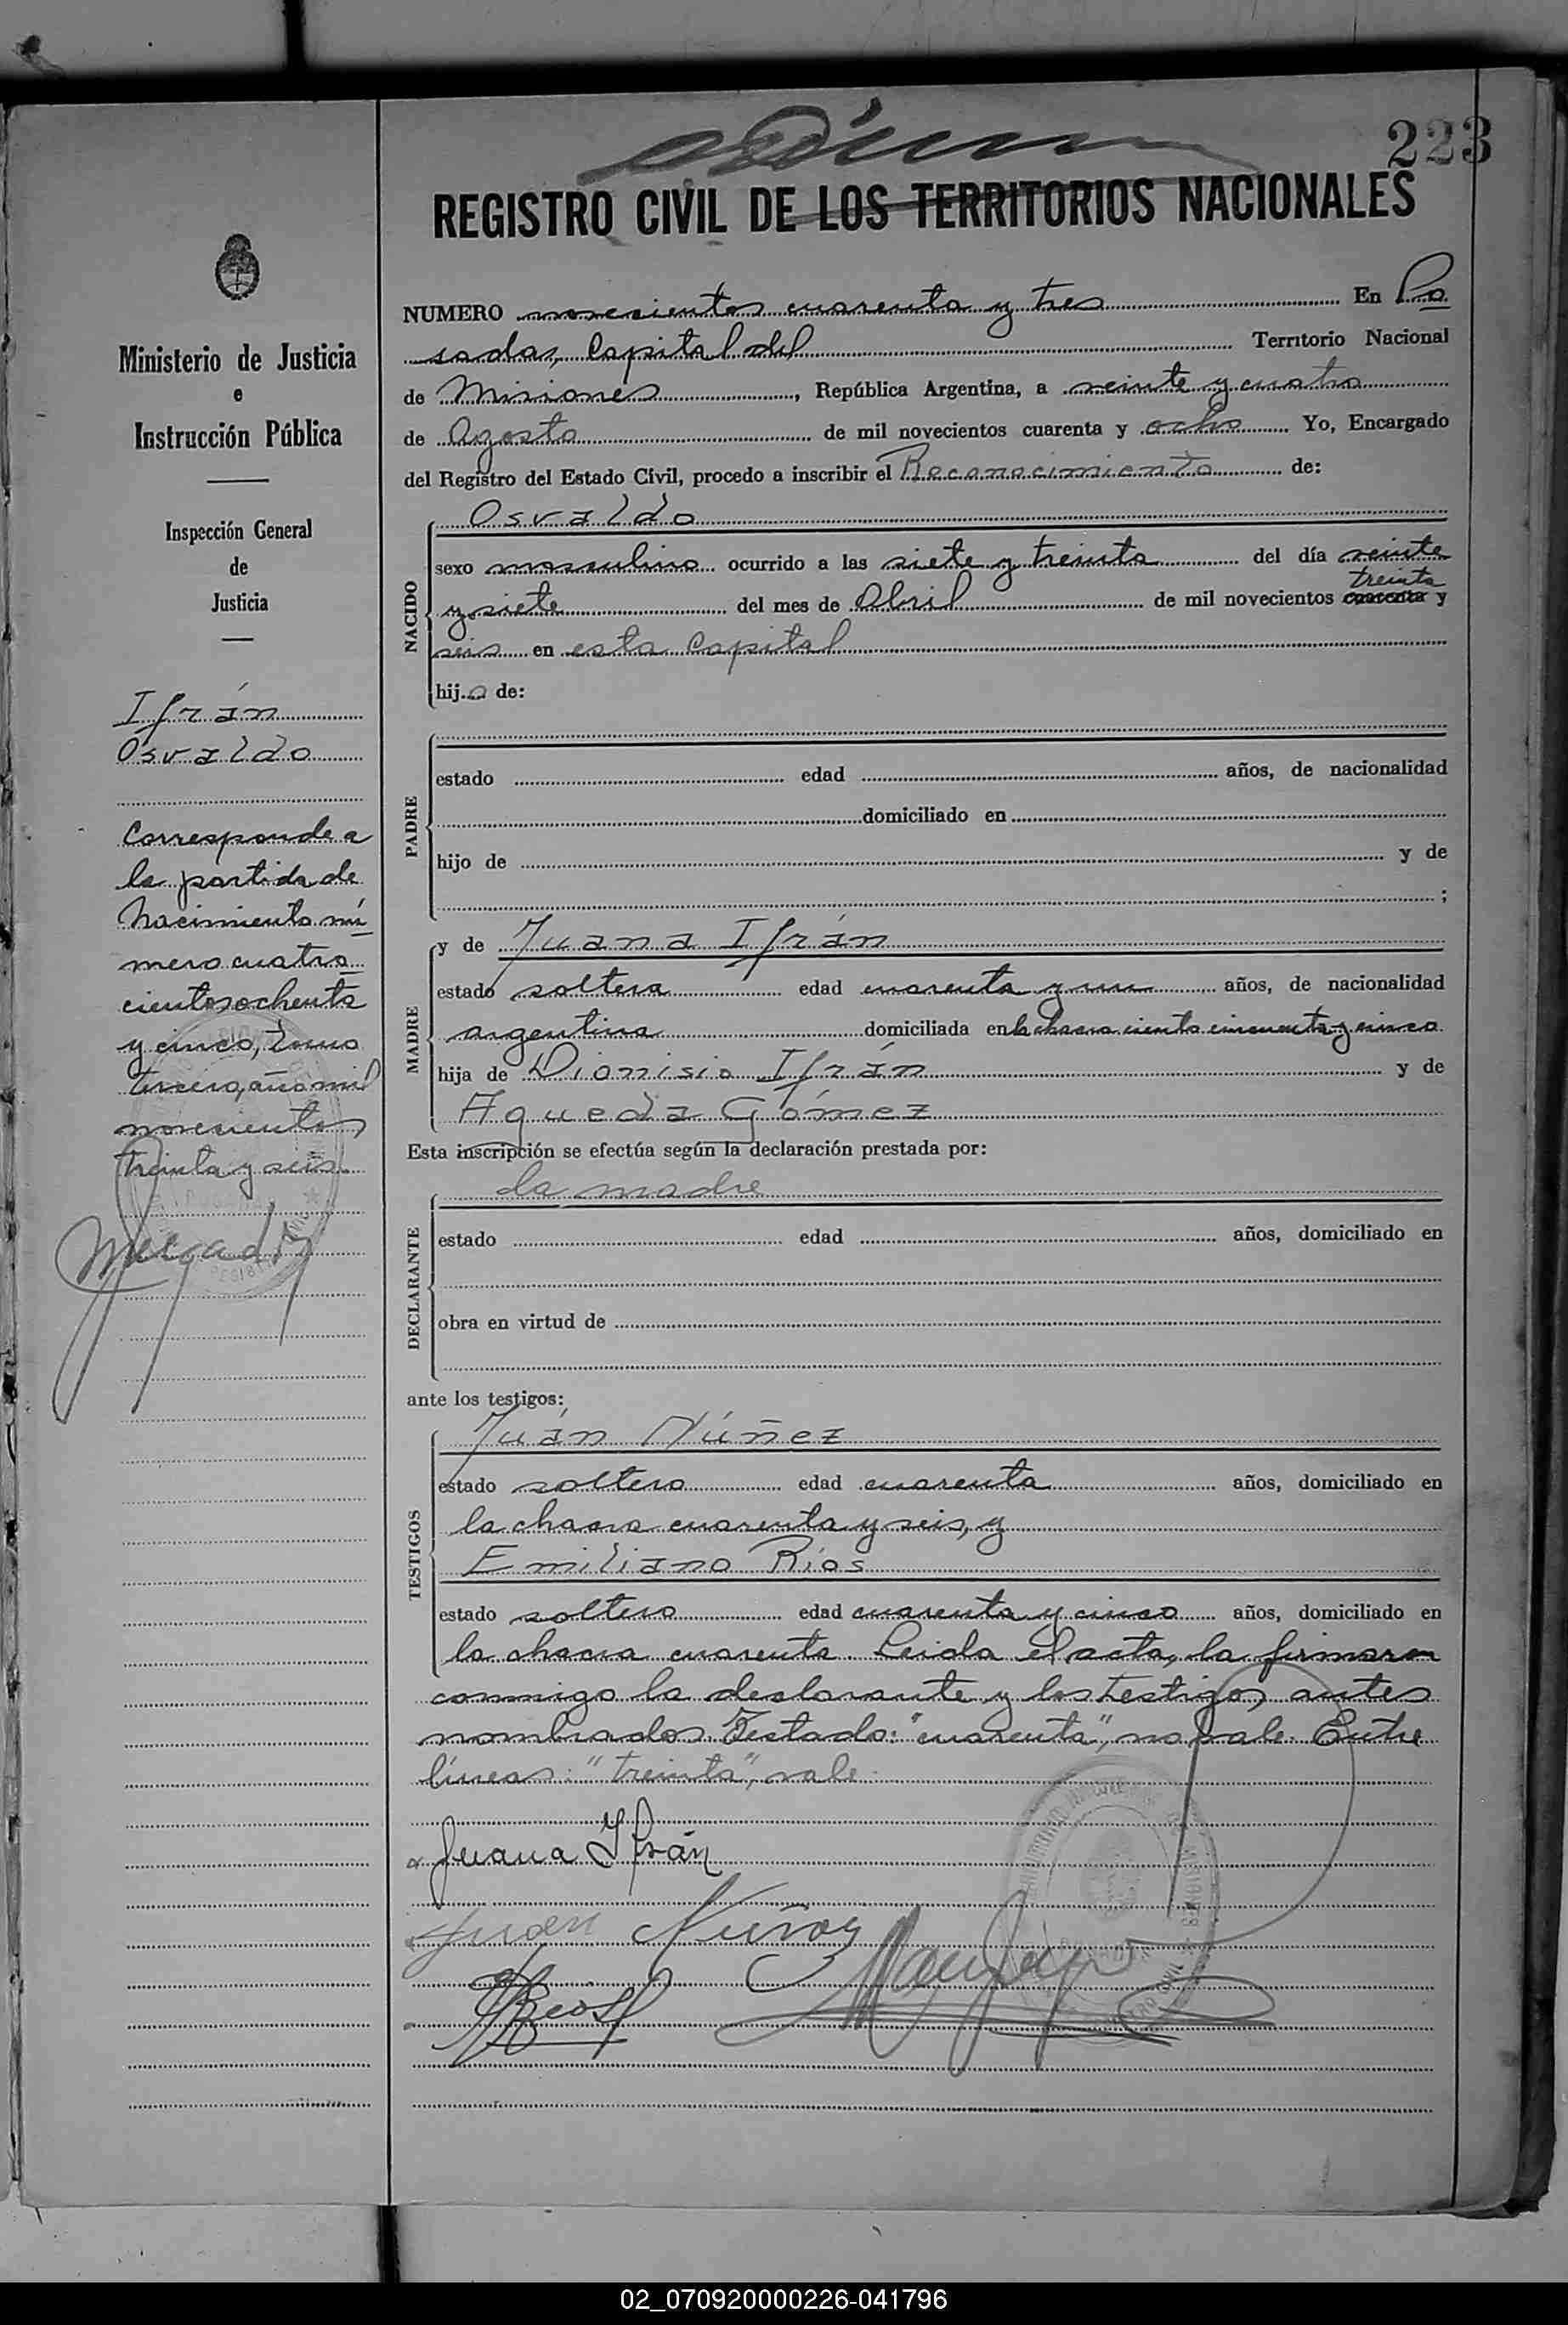 223
REGISTRO CIVIL DE LOS TERRITORIOS NACIONALES
Ministerio de Justicia
e
Instrucción Pública
Inspección General
de
Justicia
Ifrán
Osvaldo
Corresponde a
la partida de
Nacimiento nú
mero cuatro
cientos ochenta
y cinco, tomo
tercero, año mil
novecientos
treinta y seis
NUMERO novecientos cuarenta y tres En Po
sadas, Capital del Territorio Nacional
de Misiones, República Argentina, a veinte y cuatro
de Agosto de mil novecientos cuarenta y ocho Yo, Encargado
del Registro del Estado Civil, procedo a inscribir el Reconocimiento de:
NACIDO
Osvaldo
sexo masculino ocurrido a las siete y treinta del día veinte
treinta
y siete del mes de Abril de mil novecientos cuarenta y
seis en esta Capital
hijo de:
PADRE
estado edad años, de nacionalidad
domiciliado en
hijo de y de
;
MADRE
y de Juana Ifrán
estado soltera edad cuarenta y un años, de nacionalidad
argentina domiciliada en la chacra ciento cincuenta y cinco
hija de Dionisio Ifrán y de
Agueda Gómez
Esta inscripción se efectúa según la declaración prestada por:
DECLARANTE
la madre
estado edad años, domiciliado en
obra en virtud de
ante los testigos:
TESTIGOS
Juán Núñez
estado soltero edad cuarenta años, domiciliado en
la chacra cuarenta y seis, y
Emiliano Ríos
estado soltero edad cuarenta y cinco años, domiciliado en
la chacra cuarenta. Leida el acta, la firmaron
conmigo la declarante y los testigos antes
nombrados. Testado: "cuarenta", no vale. Entre
líneas: "treinta", vale.
Juana Ifrán
Juan Nuñez
02_070920000226-041796